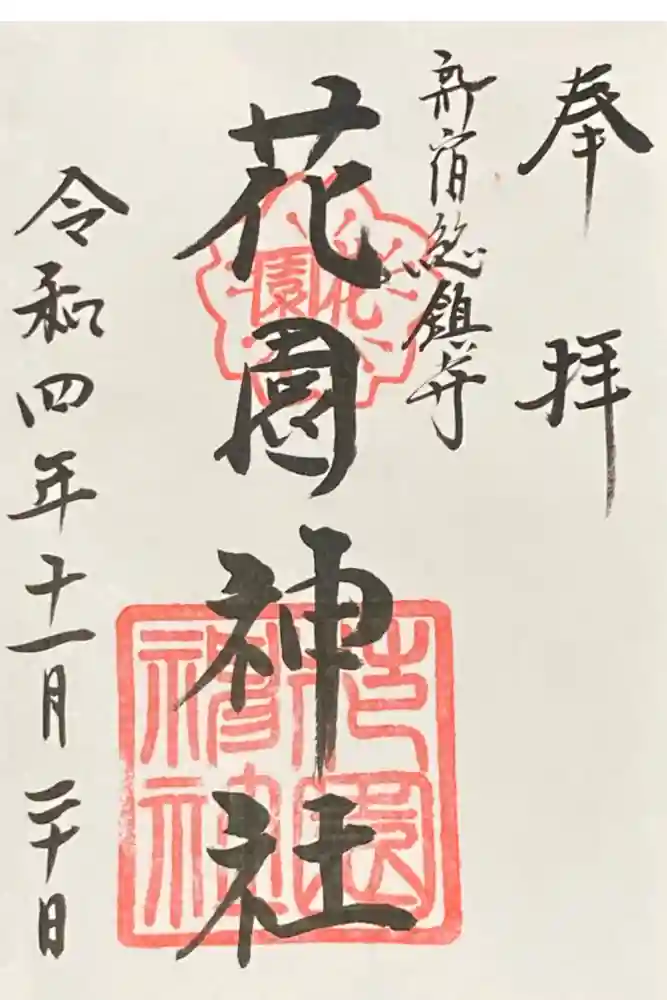 奉拝
新宿総鎮守
花園神社
花園
令和四年十一月二十日